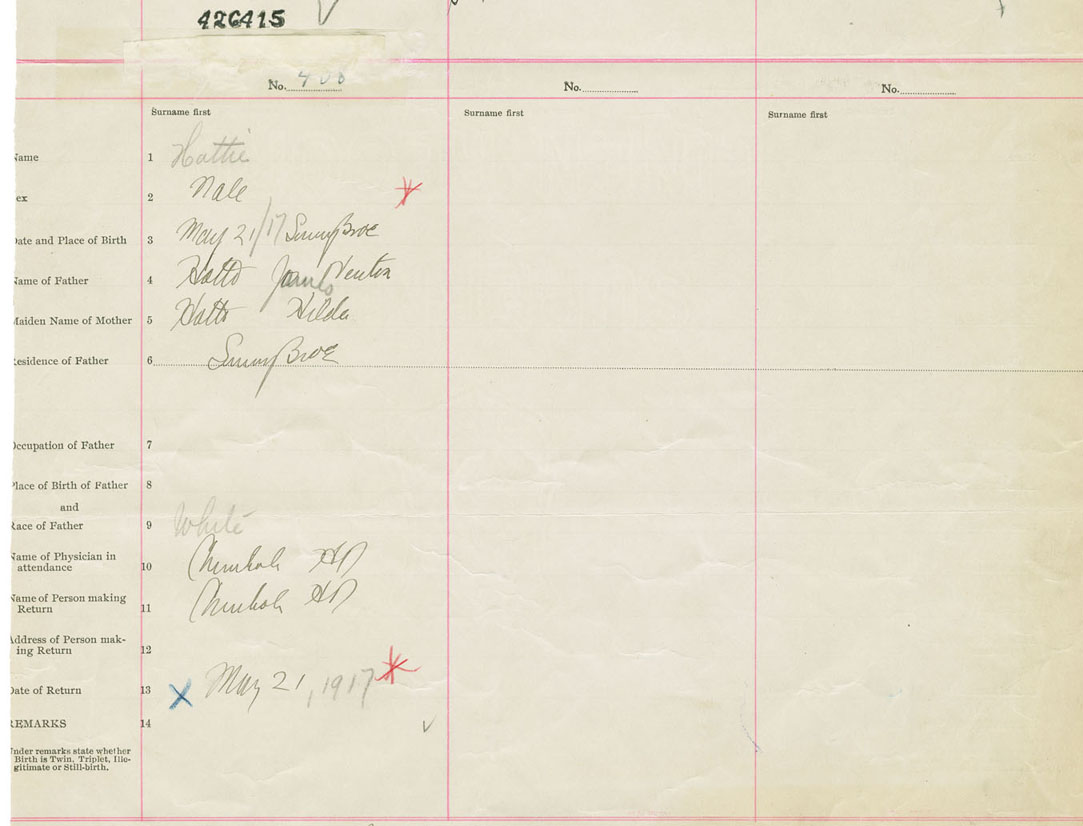 426415
No. 408
No.
No.
Surname first
Surname first
Surname first
Name 1 Hattie
ex 2 Male
Date and Place of Birth 3 May 21/17 SunnyBrae
Name of Father 4 Hatto James Newton
Maiden Name of Mother 5 Hatto Hilda
Residence of Father 6 SunnyBrae
Occupation of Father 7
Place of Birth of Father 8
and
Race of Father 9 White
Name of Physician in
attendance 10
Name of Person making
Return 11
Address of Person mak-
ing Return 12
Date of Return 13 May 21, 1917
REMARKS 14
Under remarks state whether
Birth is Twin, Triplet, Ille-
gitimate or Still-birth.